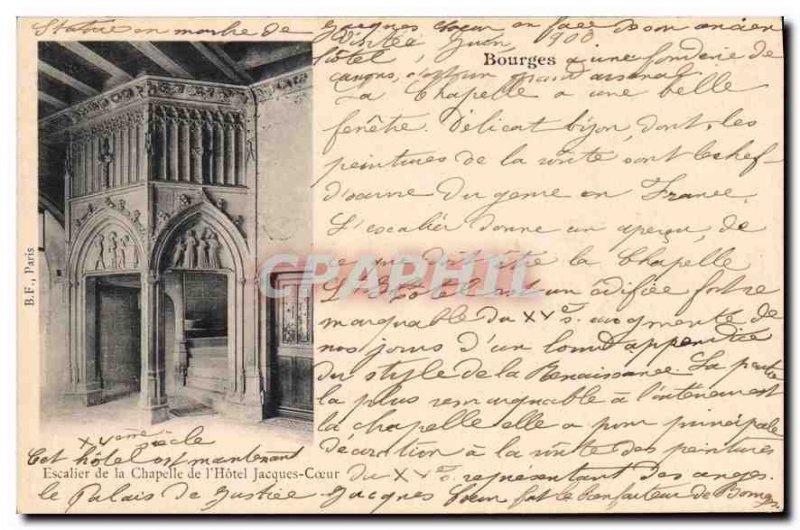 Statue en marbre de Jacques Coeur en face de son ancien
hôtel, Visitée Juin 1900
Bourges a une fonderie de
canons, c'est un grand arsenal
La Chapelle a une belle
fenêtre. Délicat bijou, dont, les
peintures de la voûte sont le chef-
d'œuvre du genre en France.
L'escalier donne un aperçu, de
ce que doit être la Chapelle
L'Hôtel est un édifice fort re
marquable du XVe s. augmenté de
nos jours d'un lourd appendice
du style de la Renaissance La partie
la plus remarquable à l'intérieur est
la chapelle elle a pour principale
décoration à la voûte des peintures
du XVe s. représentant des anges.
Jacques Coeur fut le bienfaiteur de Bourges
B.F., Paris
XVeme siècle
Cet hôtel est maintenant
Escalier de la Chapelle de l'Hôtel Jacques-Cœur
le Palais de Justice
GRAPHIL